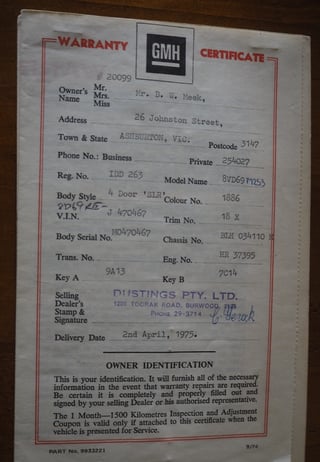 WARRANTY GMH CERTIFICATE
# 20099
Owner's Name Mr. Mrs. Miss Mr. B. W. Meek,
Address 26 Johnston Street,
Town & State ASHBURTON, VIC. Postcode 3147
Phone No.: Business Private 254027
Reg. No. IDD 263 Model Name 8VD69
Body Style 4 Door 'SLR' Colour No. 1886
V.I.N. J 470467 Trim No. 18 X
Body Serial No. M0470467 Chassis No. 034110
Trans. No. Eng. No. HR 37395
Key A 9A13 Key B 7C14
Selling Dealer's Stamp & Signature DUSTINGS PTY. LTD.
TOORAK ROAD, BURWOOD
Phone 29-3714
Delivery Date 2nd April, 1975.
OWNER IDENTIFICATION
This is your identification. It will furnish all of the necessary
information in the event that warranty repairs are required.
Be certain it is completely and properly filled out and
signed by your selling Dealer or his authorised representative.
The 1 Month—1500 Kilometres Inspection and Adjustment
Coupon is valid only if attached to this certificate when the
vehicle is presented for Service.
PART No. 9933221 9/74